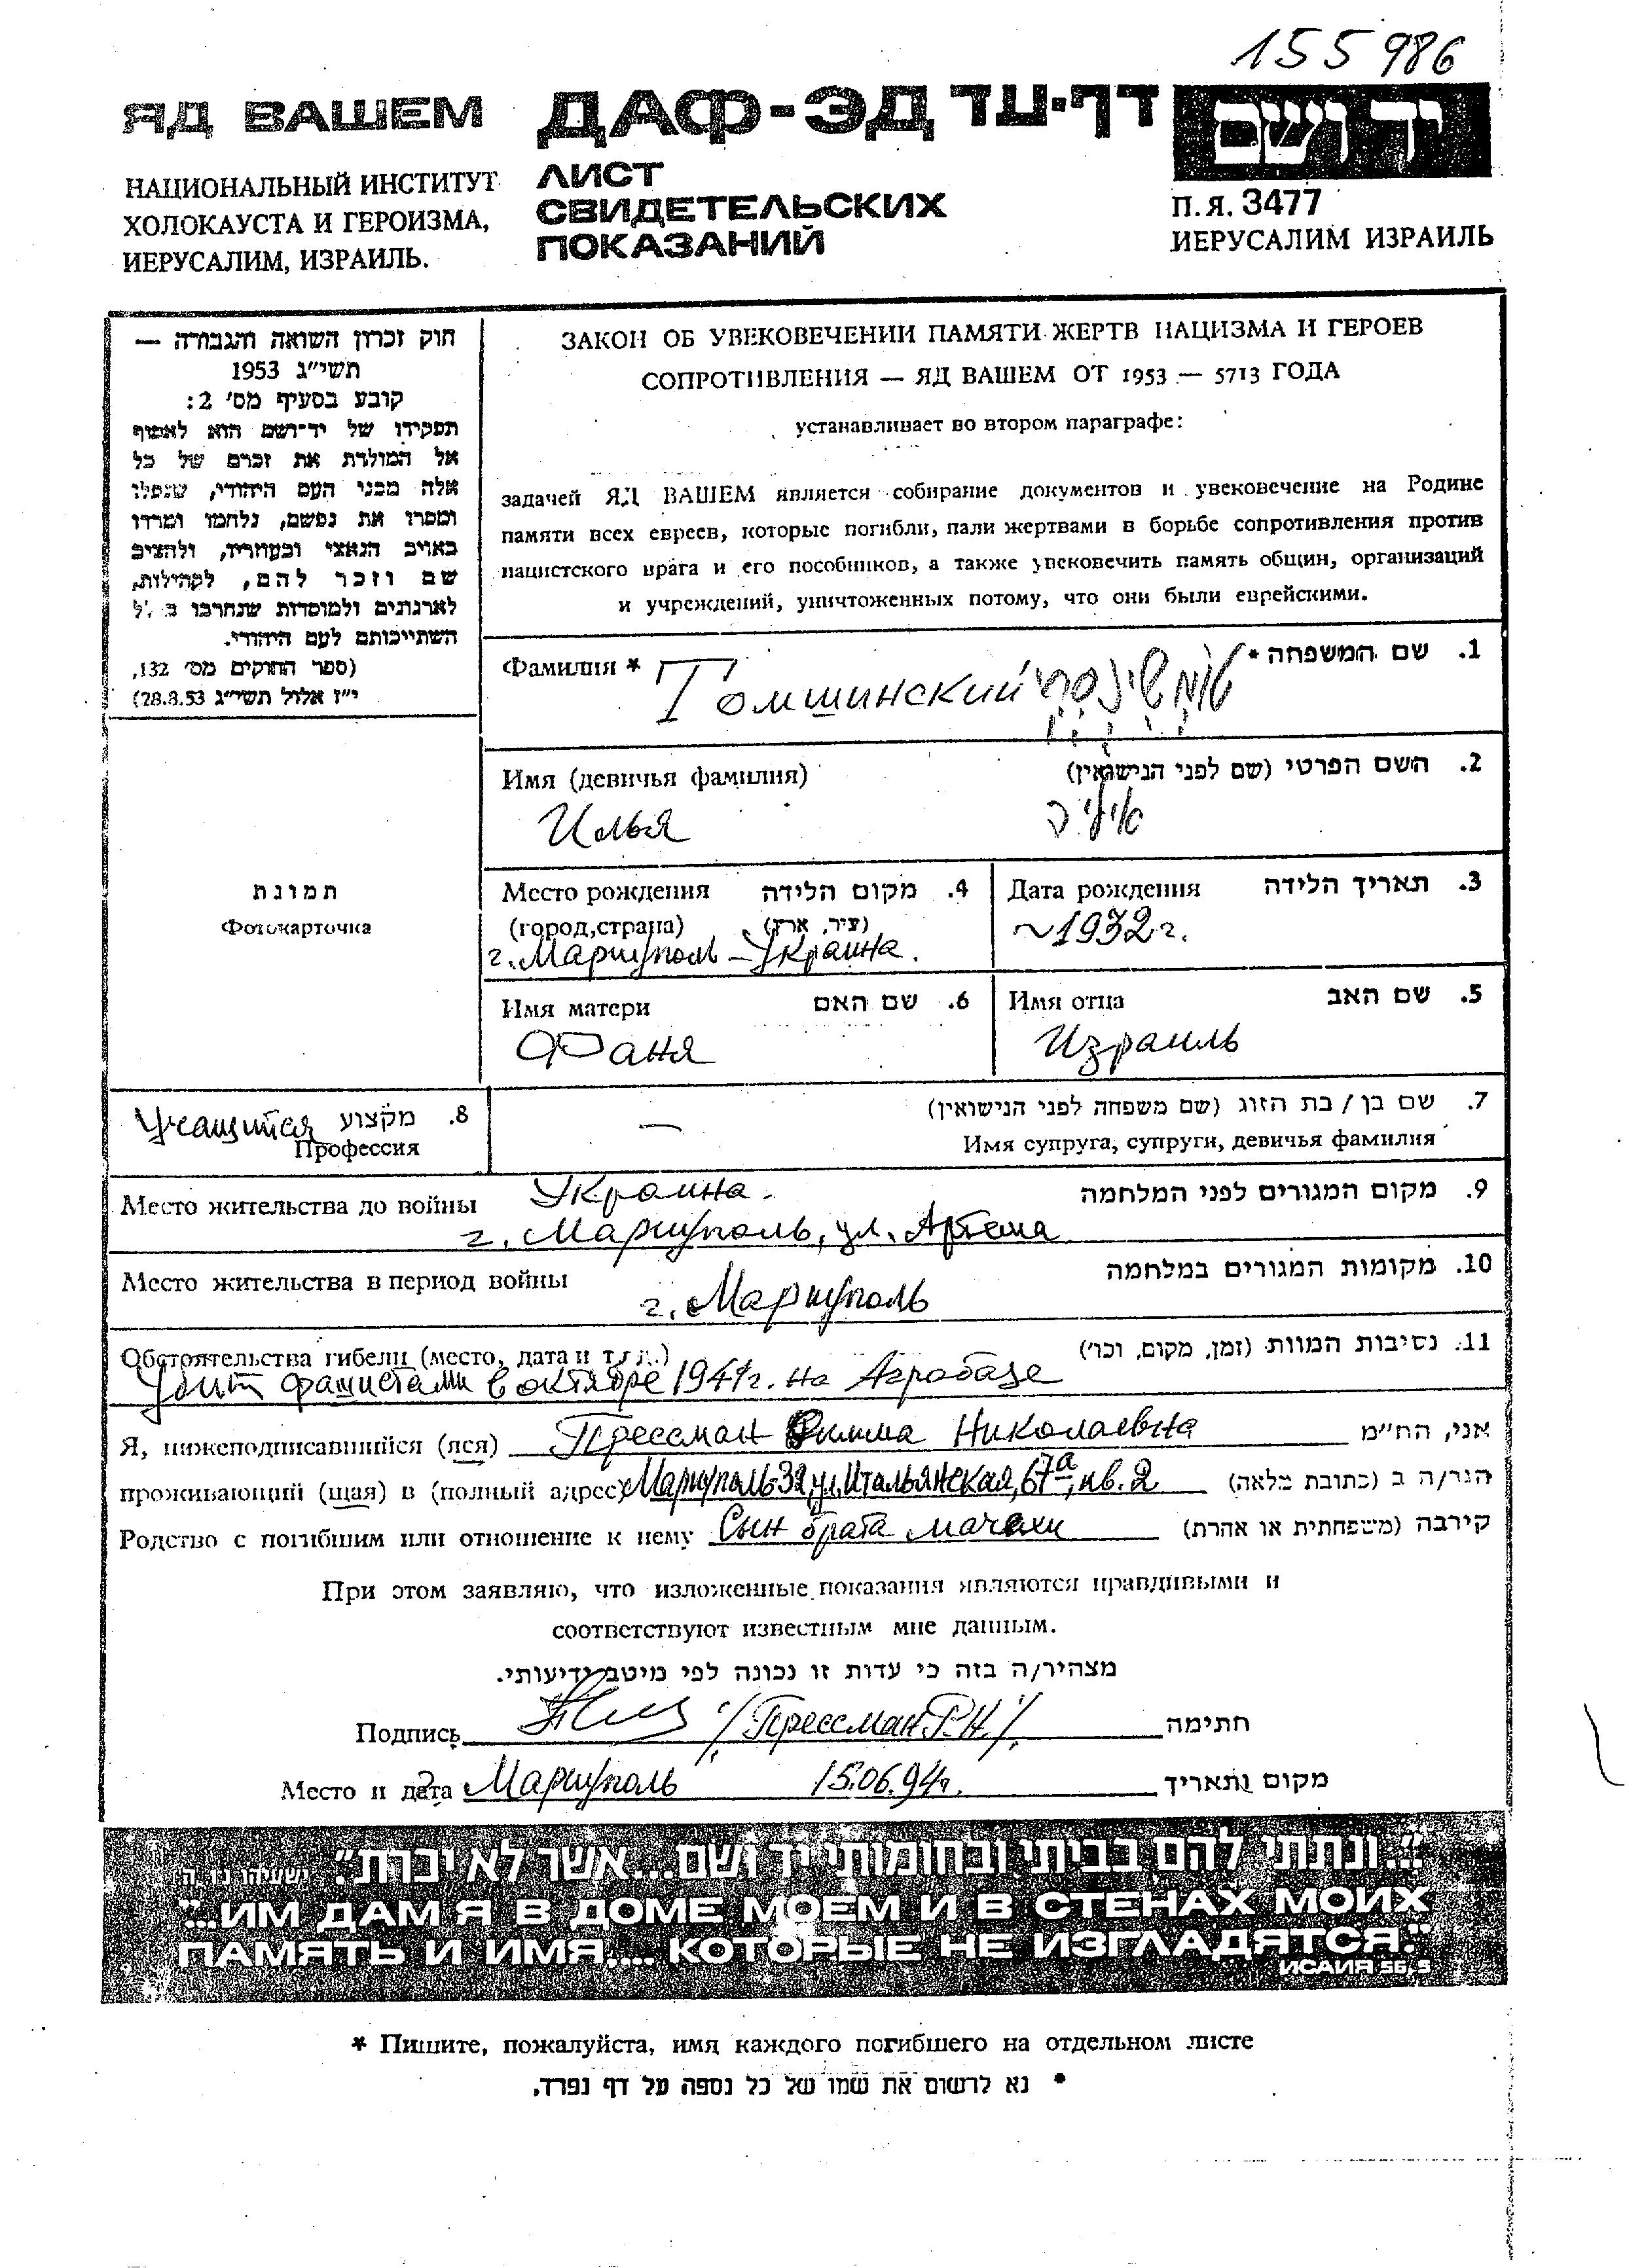 155986
ЯД ВАШЕМ
ДАФ-ЭД דף-עד
יד ושם
НАЦИОНАЛЬНЫЙ ИНСТИТУТ
ХОЛОКАУСТА И ГЕРОИЗМА,
ИЕРУСАЛИМ, ИЗРАИЛЬ.
ЛИСТ
СВИДЕТЕЛЬСКИХ
ПОКАЗАНИЙ
П.Я. 3477
ИЕРУСАЛИМ ИЗРАИЛЬ
חוק זכרון השואה והגבורה —
תשי"ג 1953
קובע בסעיף מס' 2:
תפקידו של יד-ושם הוא לאסוף
אל המולדת את זכרם של כל
אלה מבני העם היהודי, שנפלו
ומסרו את נפשם, נלחמו ומרדו
באויב הנאצי ובעוזריו, ולהציב
שם וזכר להם, לקהילות,
לארגונים ולמוסדות שנחרבו ב
השתייכותם לעם היהודי.
(ספר החוקים מס' 132,
י"ז אלול תשי"ג 28.8.53)
ЗАКОН ОБ УВЕКОВЕЧЕНИИ ПАМЯТИ ЖЕРТВ НАЦИЗМА И ГЕРОЕВ
СОПРОТИВЛЕНИЯ — ЯД ВАШЕМ ОТ 1953 — 5713 ГОДА
устанавливает во втором параграфе:
задачей ЯД ВАШЕМ является собирание документов и увековечение на Родине
памяти всех евреев, которые погибли, пали жертвами в борьбе сопротивления против
нацистского врага и его пособников, а также увековечить память общин, организаций
и учреждений, уничтоженных потому, что они были еврейскими.
Фамилия * 1. שם המשפחה *
Томшинский טומשינסקי
Имя (девичья фамилия) 2. השם הפרטי (שם לפני הנישואין)
Илья איליה
תמונת
Фотокарточка
Место рождения 4. מקום הלידה
(город,страна) (עיר, ארץ)
г. Мариуполь – Украина.
Дата рождения 3. תאריך הלידה
~1932 г.
Имя матери 6. שם האם
Фаня
Имя отца 5. שם האב
Израиль
Учащийся 8. מקצוע
Профессия
—
7. שם בן / בת הזוג (שם משפחה לפני הנישואין)
Имя супруга, супруги, девичья фамилия
Место жительства до войны Украина. 9. מקום המגורים לפני המלחמה
г. Мариуполь, ул. Артема
Место жительства в период войны 10. מקומות המגורים במלחמה
г. Мариуполь
Обстоятельства гибели (место, дата и т.п.) 11. נסיבות המוות (זמן, מקום, וכו')
Убит фашистами в октябре 1941г. на Агробазе
Я, нижеподписавшийся (яся) Прессман Римма Николаевна אני, הח"מ
проживающий (щая) в (полный адрес) Мариуполь-32, ул. Итальянская, 67а, кв. 2 הגר/ה ב (כתובת מלאה)
Родство с погибшим или отношение к нему Сын брата мачехи קירבה (משפחתית או אחרת)
При этом заявляю, что изложенные показания являются правдивыми и
соответствуют известным мне данным.
מצהיר/ה בזה כי עדות זו נכונה לפי מיטב ידיעותי.
Подпись /Прессман Р.Н./ חתימה
Место и дата Мариуполь 15.06.94г. מקום ותאריך
"...ונתתי להם בביתי ובחומותי יד ושם...אשר לא יכרת". ישעיהו נו, ה
"...ИМ ДАМ Я В ДОМЕ МОЕМ И В СТЕНАХ МОИХ
ПАМЯТЬ И ИМЯ,... КОТОРЫЕ НЕ ИЗГЛАДЯТСЯ."
ИСАИЯ 56, 5
* Пишите, пожалуйста, имя каждого погибшего на отдельном листе
* נא לרשום את שמו של כל נספה על דף נפרד.